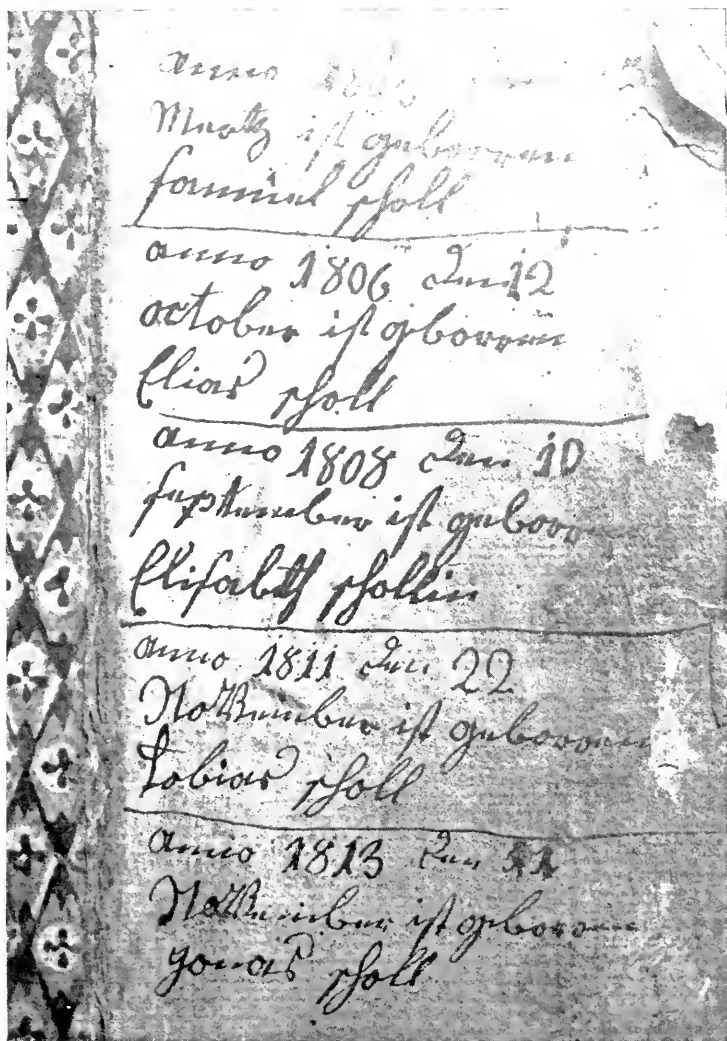 anno
Mertz ist geborren
samuel scholl
anno 1806 den 12
october ist geborren
Elias scholl
anno 1808 den 10
september ist geborren
Elisabeth schollin
anno 1811 den 22
November ist geborren
tobias scholl
anno 1813 den 11
November ist geborren
yonas scholl